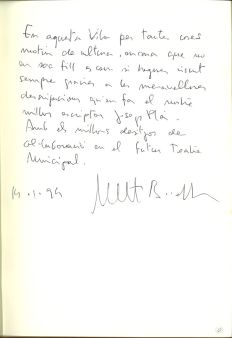 En aquesta Vila per tantes coses
motiu de cultura, encara que no
en soc fill es com si hagues viscut
sempre gracies a les meravelloses
descripcions qu'en fa el nostre
millor escriptor Josep Pla.
Amb els millors desitjos de
col·laboració en el futur Teatre
Municipal.
14.1.94